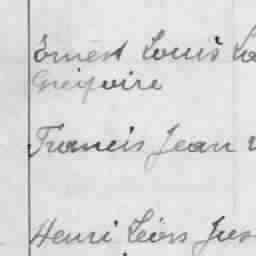 Ernest Louis
Gregoire
Francis Jean
Henri Léon